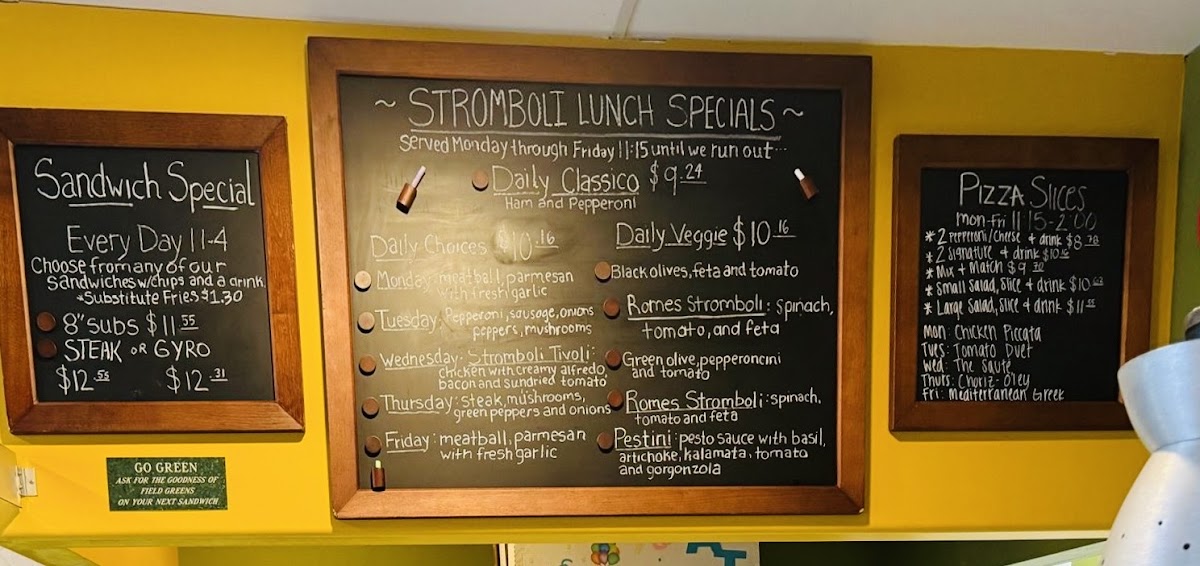 Sandwich Special
Every Day 11-4
Choose from any of our
Sandwiches w/chips and a drink
*Substitute Fries $1.30
8" subs $11.55
STEAK OR GYRO
$12.55 $12.31
GO GREEN
ASK FOR THE GOODNESS OF
FIELD GREENS
ON YOUR NEXT SANDWICH
~ STROMBOLI LUNCH SPECIALS ~
Served Monday through Friday 11:15 until we run out...
Daily Classico $9.24
Ham and Pepperoni
Daily Choices $10.16
Monday: meatball, parmesan
with fresh garlic
Tuesday: Pepperoni, sausage, onions
peppers, mushrooms
Wednesday- Stromboli Tivoli:
chicken with creamy alfredo
bacon and sundried tomato
Thursday: steak, mushrooms,
green peppers and onions
Friday: meatball, parmesan
with fresh garlic
Daily Veggie $10.16
Black olives, feta and tomato
Romes Stromboli: spinach,
tomato, and feta
Green olive, pepperoncini
and tomato
Romes Stromboli: spinach,
tomato and feta
Pestini: pesto sauce with basil,
artichoke, kalamata, tomato
and gorgonzola
PIZZA SLICES
mon-Fri 11:15-2:00
* 2 Pepperoni/cheese & drink $8.70
* 2 Signature & drink $10
* Mix & Match $9.70
* Small Salad, Slice & drink $10
* Large Salad, Slice & drink $11
Mon: Chicken Piccata
Tues: Tomato Duet
Wed: The Sauté
Thurs: Choriz-Oley
Fri: Mediterranean Greek